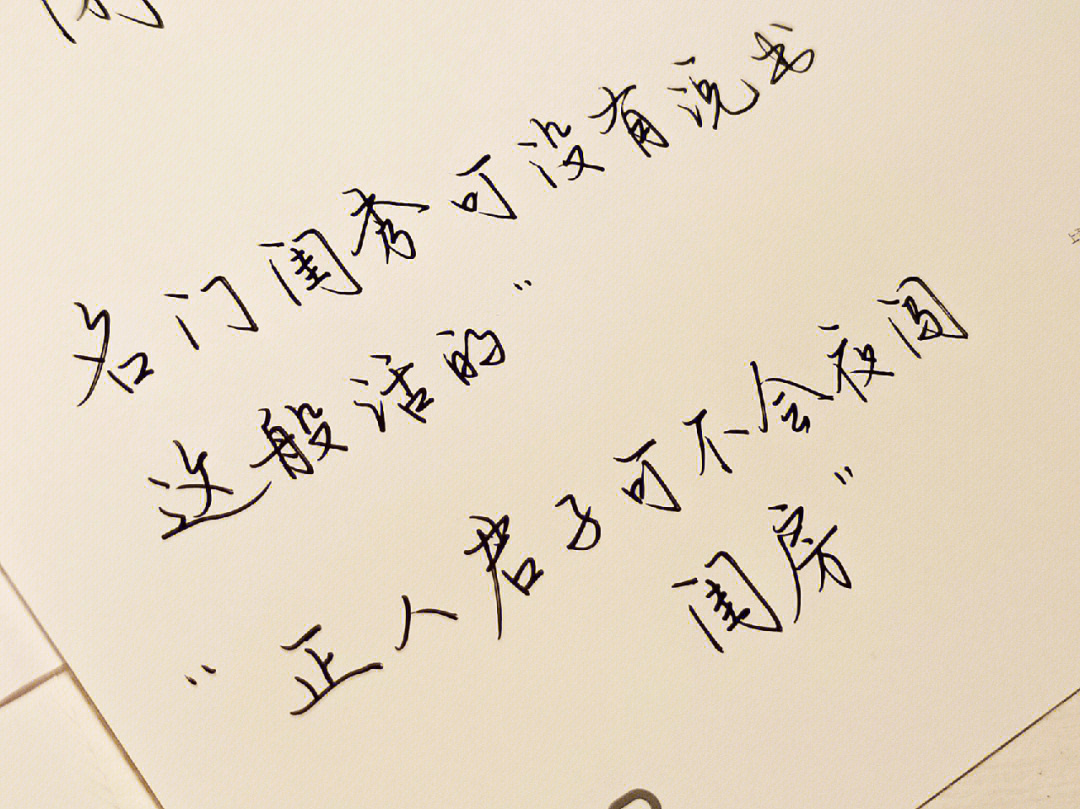 名门闺秀可没有说出
这般话的"
"正人君子可不会夜闯
闺房"